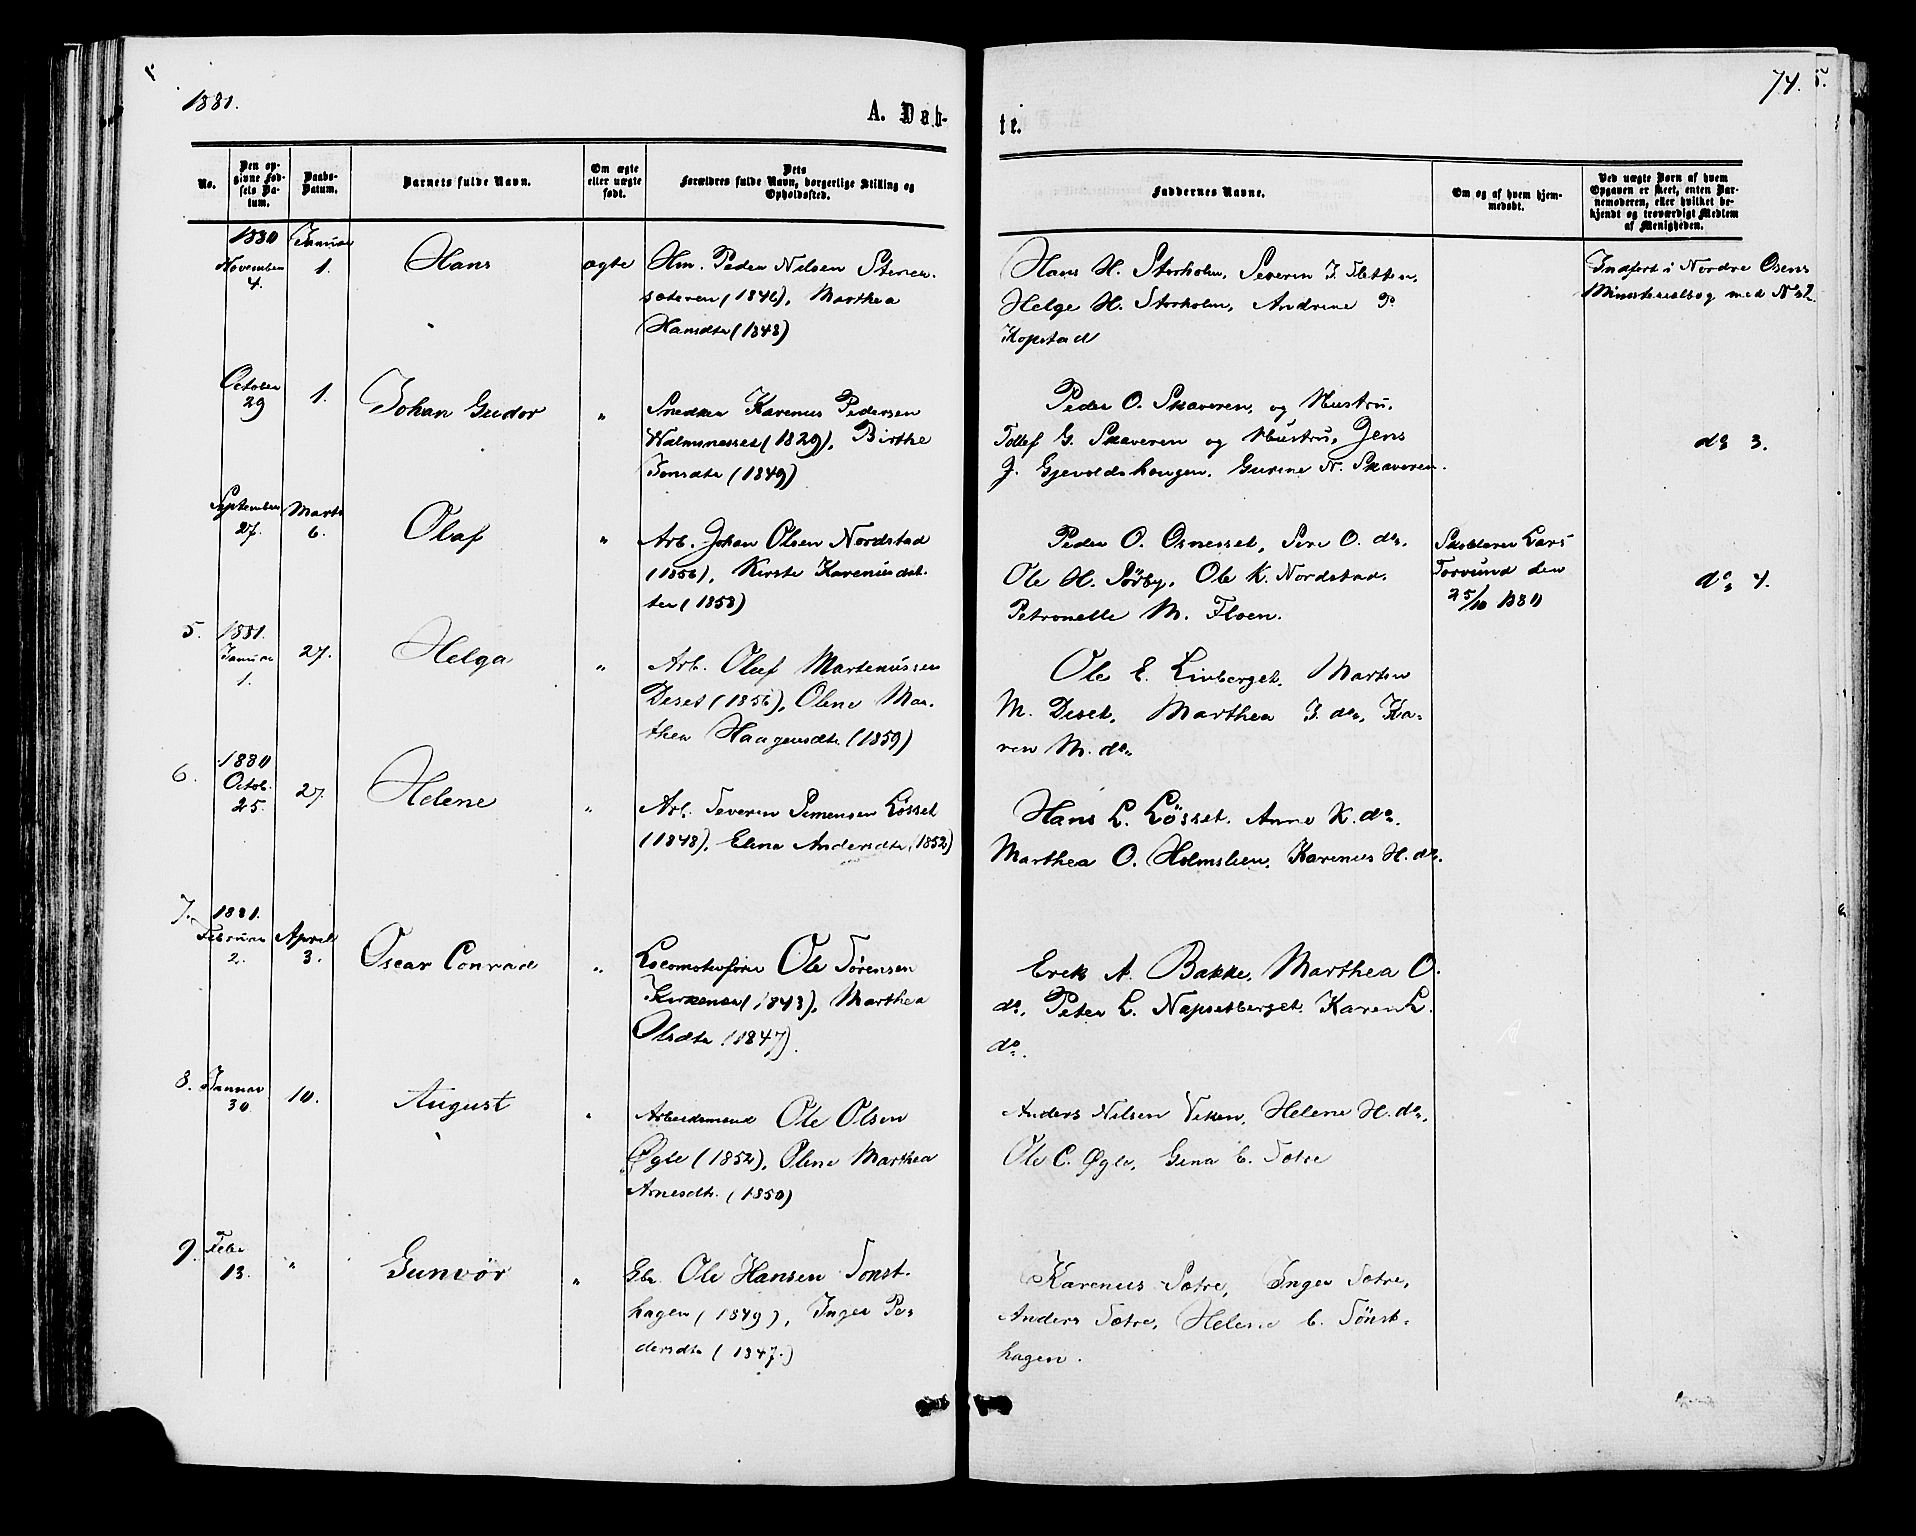 1881.
A. Døb-
te.
74. 5.
No.
Den op-
givne Fød-
sels Da-
tum.
Daabs-
Datum.
Barnets fulde Navn.
Om ægte
eller uægte
født.
Dets
Forældres fulde Navn, borgerlige Stilling og
Opholdssted.
Faddernes Navne.
Om og af hvem hjem-
medøbt.
Ved uægte Børn af hvem
Opgaven er skeet, enten Bar-
nemoderen, eller hvilket be-
kjendt og troværdigt Medlem
af Menigheden.
1880
November
4.
Januar
1.
Hans
ægte
Hm. Peder Nilsen Stener-
sæteren (1846), Marthea
Hansdtr (1848)
Hans H. Storholm, Severin J. Fletten,
Helge H. Storholm, Andrine P.
Kopstad
Indført i Nordre Osens
Ministerialbog med No 2
October
29
1.
Johan Gudor
"
Snedker Karenus Pedersen
Valmnesset (1829), Birthe
Jensdtr (1849)
Peder O. Skaveren, og Hustru,
Tollef G. Skaveren og Hustru, Jens
J. Gjevoldshaugen, Gurine N. Skaveren.
do 3.
September
27.
Marts
6.
Olaf
"
Arb. Johan Olsen Nordstad
(1856), Kirste Karenusdat-
ter (1858)
Peder O. Osnesset, Siri O. do,
Ole H. Sørby, Ole K. Nordstad,
Petronelle M. Floen.
Skolelærer Lars
Torvund den
25/10 1880
do 4.
5.
1881.
Januar
1.
27.
Helga
"
Arb. Olaf Martinussen
Deset (1856), Oline Mar-
thea Haagensdtr (1859)
Ole E. Linberget, Martin
M. Deset, Marthea J. do, Ka-
ren M. do
6.
1880
Octob.
25.
27.
Helene
"
Arb. Severin Simensen Løsset
(1848), Elina Andersdtr (1852)
Hans L. Løsset, Anne K. do,
Marthea O. Holmslien, Karenus H. do.
7.
1881.
Februar
2.
April
3.
Oscar Conrad
"
Locomotivfører Ole Sørensen
Kirkenær (1843), Marthea
Olsdtr (1847)
Erik A. Bakke, Marthea O.
do, Peter L. Napsetberget, Karen L.
do.
8.
Januar
30.
10.
August
"
Arbeidsmand Ole Olsen
Øgle (1852), Oline Marthea
Arnesdtr. (1850)
Anders Nilsen Viken, Helene H. do,
Ole C. Øgle, Gina E. Sætre
9.
Febr
13.
"
Gunvør
"
Gbr. Ole Hansen Tønst-
hagen (1849), Inger Pe-
dersdtr (1847.)
Karenus Sætre, Inger Sætre,
Anders Sætre, Helene E. Tønst-
hagen.